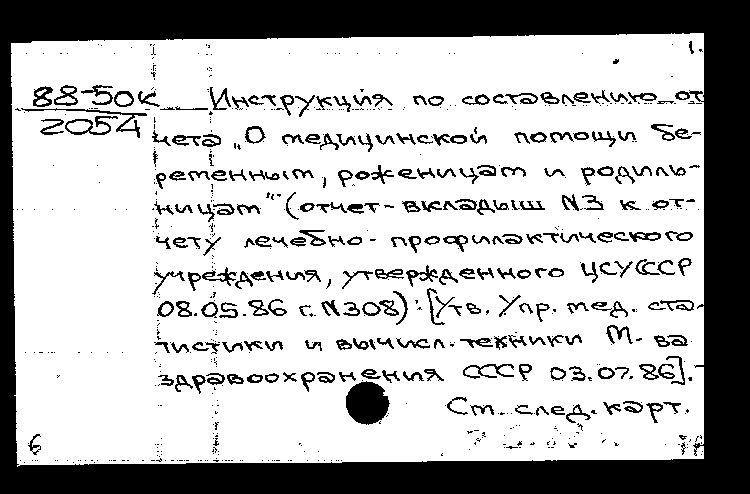 1.
88-50к Инструкция по составлению от
2054 чета „О медицинской помощи бе-
ременным, роженицам и родиль-
ницам" (отчет-вкладыш N3 к от-
чету лечебно-профилактического
учреждения, утвержденного ЦСУ СССР
08.05.86 г. N308): [Утв. Упр. мед. ста-
тистики и вычисл. техники М-ва
здравоохранения СССР 03.07.86]. -
См. след. карт.
6